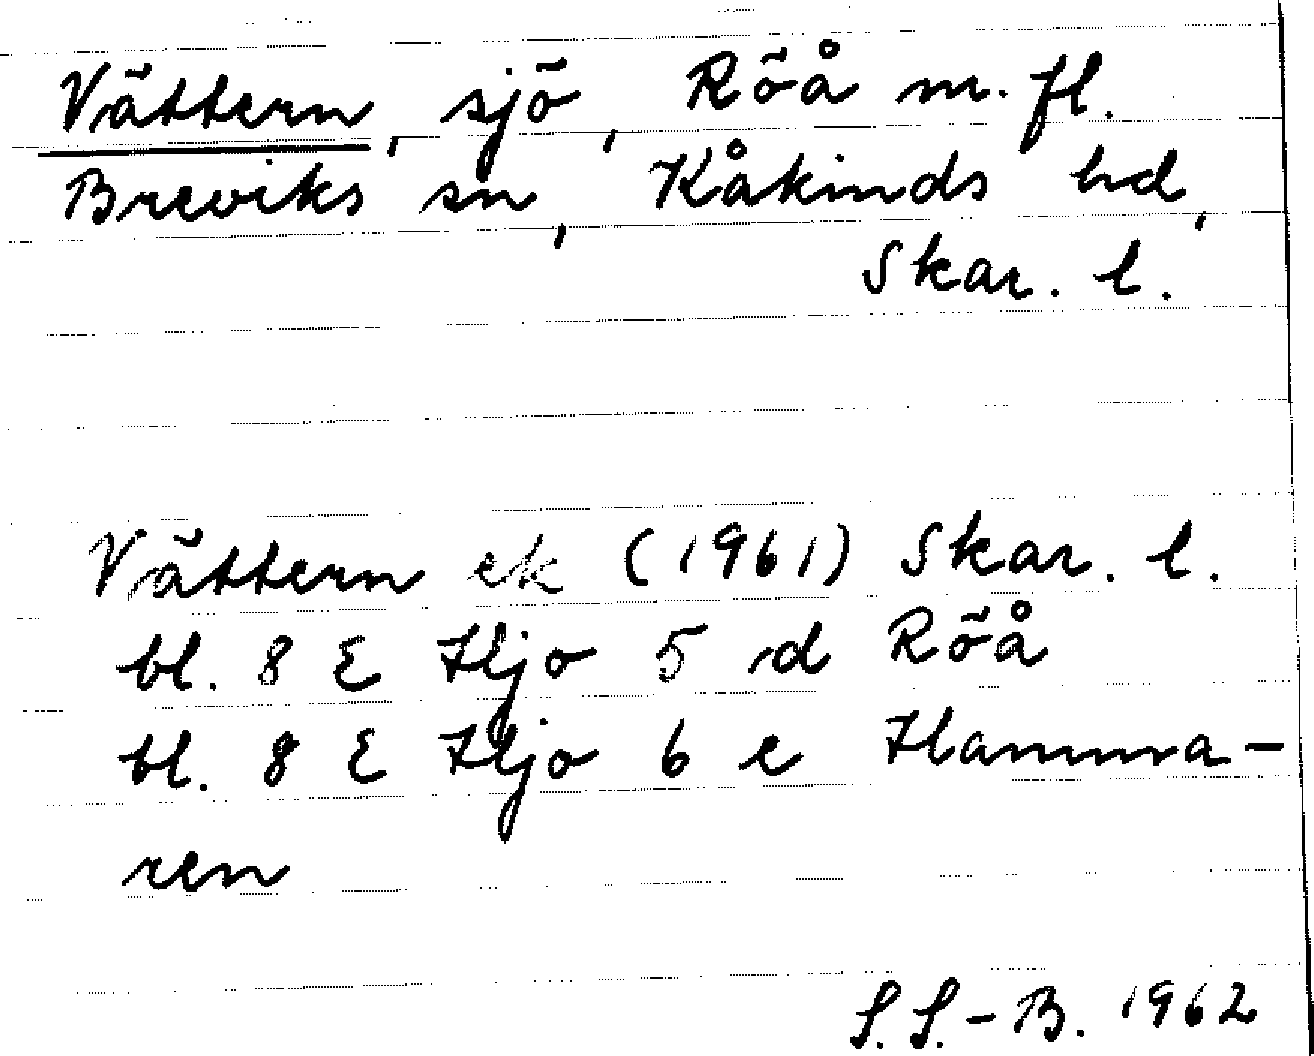 Vättern, sjö, Röå m. fl.
Breviks sn, Kåkinds hd,
Skar. l.
Vättern ek (1961) Skar. l.
bl. 8 E Hjo 5 d Röå
bl. 8 E Hjo 6 e Hamma-
ren
S. S.-B. 1962